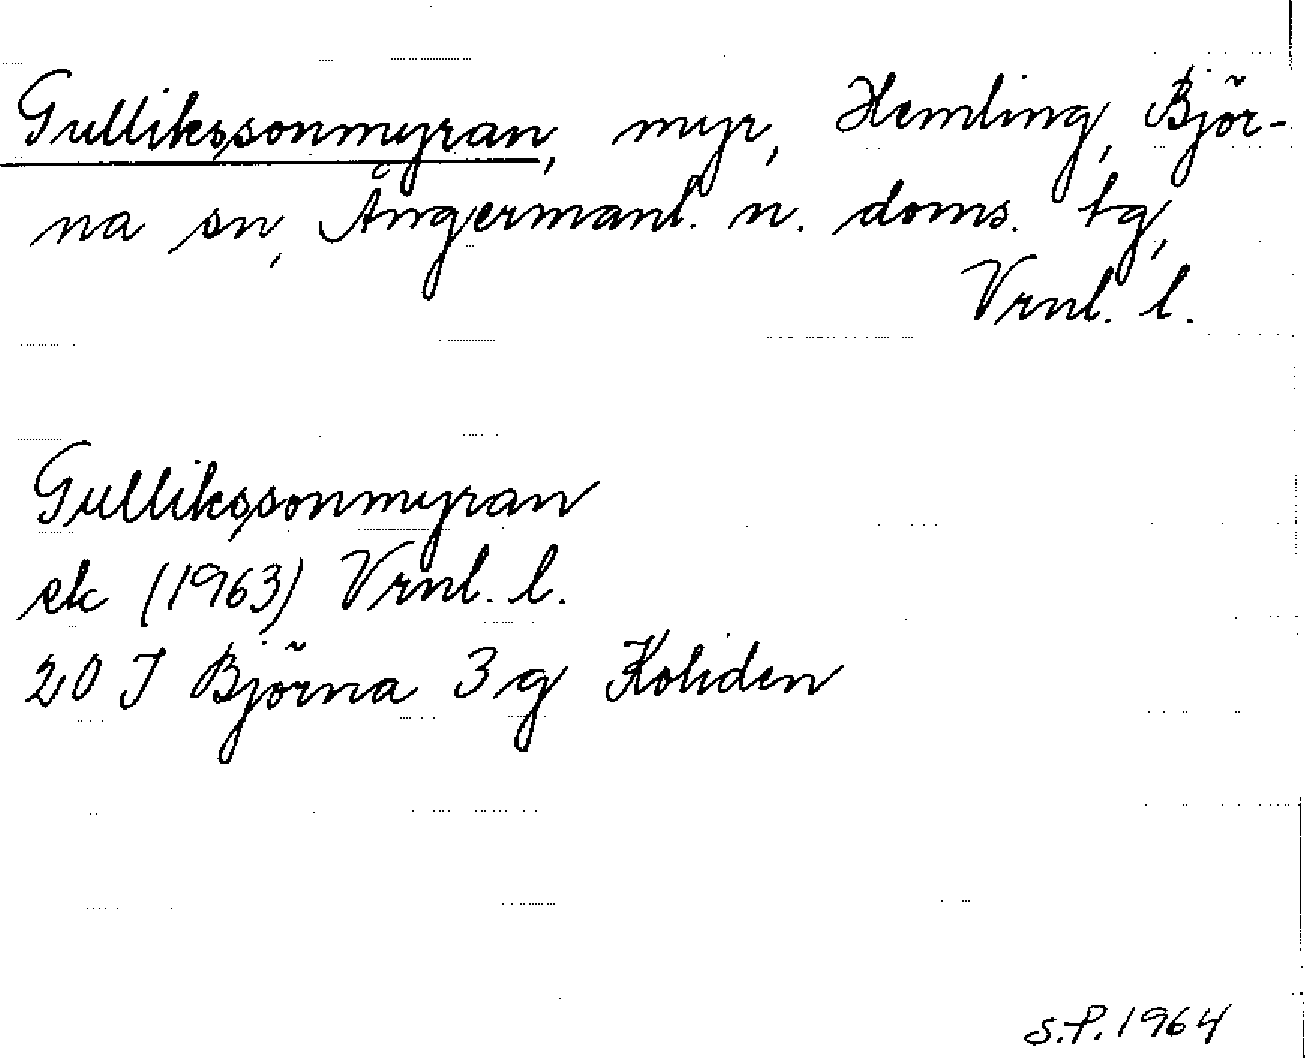 Gullikssonmyran, myr, Hemling, Björ-
na sn, Ångermanl. n. doms. tg,
Vrnl. l.
Gullikssonmyran
ek (1963) Vrnl. l.
20 J Björna 3 g Koliden
S.P. 1964